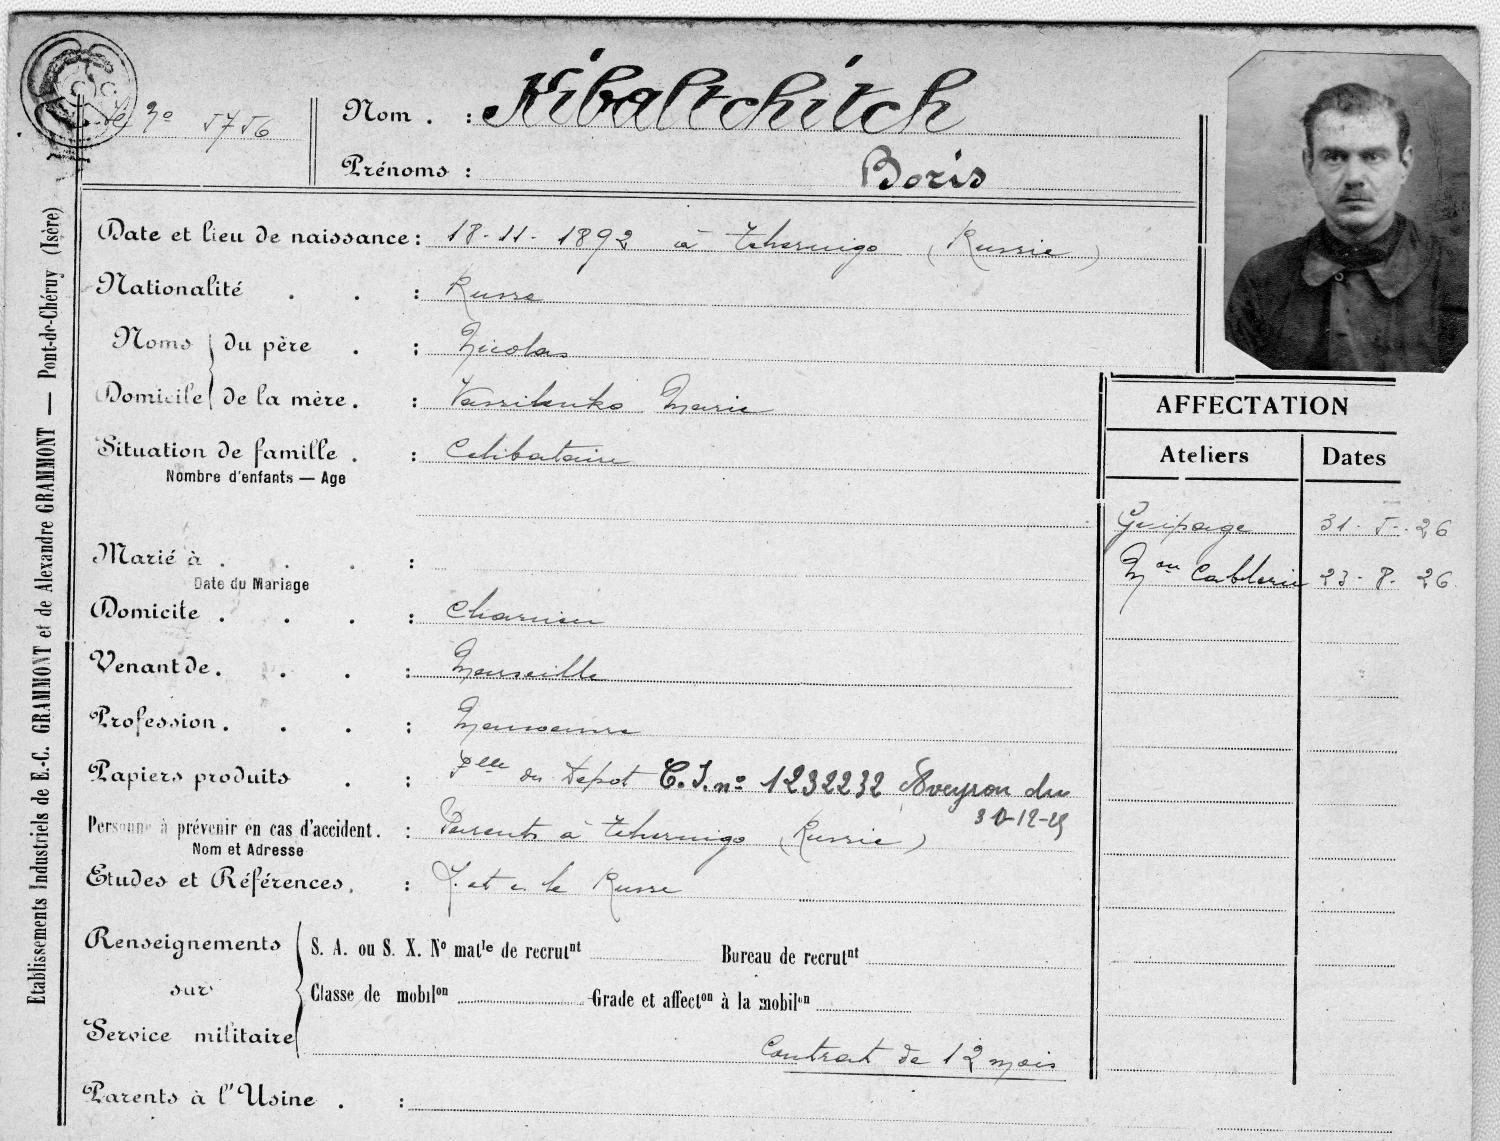 Le No 5756
Nom . : Kibaltchitch
Prénoms : Boris
Date et lieu de naissance : 18-11-1892 à Tchernigo (Russie)
Nationalité . . : Russe
Noms du père . : Nicolas
Domicile de la mère . : Vassilenko Marie
Situation de famille . : Célibataire
Nombre d'enfants — Age
Marié à . . . :
Date du Mariage
Domicile . . . : Charvieu
Venant de . . . : Marseille
Profession . . . : Manoeuvre
Papiers produits . : du Dépot C.I. no 1232232 Aveyron du
30-12-25
Personne à prévenir en cas d'accident . : Parents à Tchernigo (Russie)
Nom et Adresse
Etudes et Références . : L. et e. le Russe
Renseignements sur Service militaire
S. A. ou S. X. No matle de recrutnt Bureau de recrutnt
Classe de mobilon Grade et affecton à la mobilon
Contrat de 12 mois
Parents à l'Usine . :
AFFECTATION
Ateliers Dates
Guipage 31-5-26
Mon Cablerie 23-8-26
Etablissements Industriels de E.-C. GRAMMONT et de Alexandre GRAMMONT — Pont-de-Chéruy (Isère)